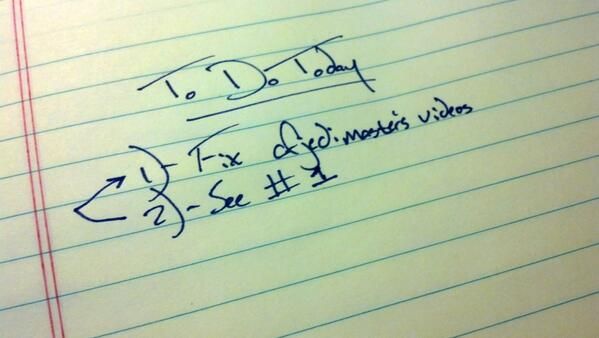 To Do Today
1)- Fix djedi.master's videos
2)- See #1